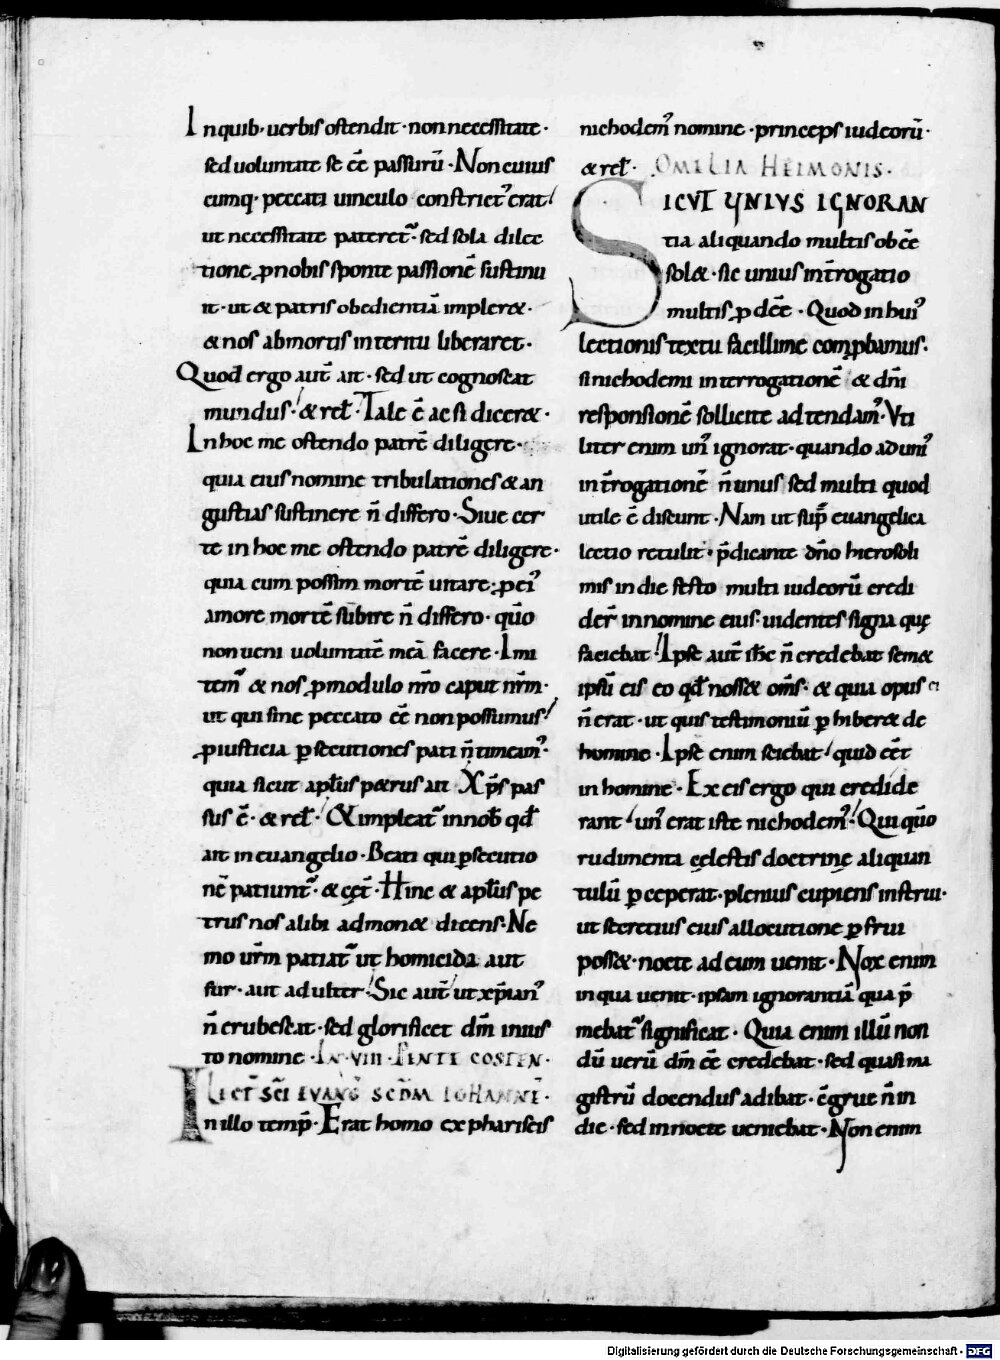 In quib; uerbis ostendit · non necessitate ·
sed uoluntate se eē passurū · Non cuius
cumq· peccati uinculo constrict᾽ erat
ut necessitate pateret᷑ · sed sola dilec
tione ꝓ nobis sponte passionē sustinu
it · ut & patris obedientiā impler& ·
& nos ab mortis interitu liberaret ·
Quod ergo aut̄ ait · sed ut cognoscat
mundus · & rel̄ · Tale ē ac si dicer& ·
In hoc me ostendo patrē diligere ·
quia eius nomine tribulationes & an
gustias sustinere n̄ differo · Siue cer
te in hoc me ostendo patrē diligere ·
quia cum possim mortē uitare · ꝓ ei᾽
amore mortē subire n̄ differo · quō
non ueni uoluntatē meā facere · Imi
tem᾽ & nos ꝓ modulo nr̄o caput nr̄m ·
ut qui sine peccato eē non possumus
ꝓ iusticia ꝑsecutiones pati n̄ timeam᾽ ·
quia sicut apl̄us p&rus ait · Xp̄s pas
sus ē · & rel̄ · & impleat᷑ in nob̄ qd̄
ait in euangelio · Beati qui ꝑsecutio
nē patiunt᷑ · & cęt̄ · Hinc & apl̄us pe
trus nos alibi admon& dicens · Ne
mo ur̄m patiat᷑ ut homicida aut
fur · aut adulter · Sic aut̄ ut xp̄ian᾽
n̄ erubescat · sed glorificet dm̄ in is
to nomine · IN VIII · PENTECOSTEN ·
LECT̄ SC̄I EVANḠ SCD̄M IOHANNĒ ·
In illo temp̄ · Erat homo ex phariseis
nichodem᾽ nomine · princeps iudeorū ·
& rel̄ · OMELIA HEIMONIS ·
SICUT UNIUS IGNORAN
tia aliquando multis obeē
sol& · sic unius int̄rogatio
multis ꝓdeē · Quod in hui᾽
lectionis textu facillime comꝓbamus ·
si nichodemi interrogationē & dn̄i
responsionē sollicite adtendam᾽ · Uti
liter enim un᾽ ignorat · quando ad uni᾽
int̄rogationē n̄ unus sed multi quod
utile ē discunt · Nam ut sup̄ euangelica
lectio retulit · p̄dicante dn̄o hierosoli
mis in die festo multi iudeorū credi
der̄ in nomine eius · uidentes signa quę
faciebat · Ipse aut̄ ih̄c n̄ credebat sem&
ipsū eis eo qd̄ noss& om̄s · & quia opus ei
n̄ erat · ut quis testimoniū ꝑhiber& de
homine · Ipse enim sciebat quid eēt
in homine · Ex eis ergo qui credide
rant un᾽ erat iste nichodem᾽ · Qui quō
rudimenta cęlestis doctrinę aliquan
tulū ꝑceperat · plenius cupiens instrui ·
ut secretius eius allocutione ꝑfrui
poss& · nocte ad eum uenit · Nox enim
in qua uenit · ipsam ignorantiā qua p̄
mebat᷑ significat · Quia enim illū non
dū uerū dm̄ eē credebat · sed quasi ma
gistrū docendus adibat · c̄grue n̄ in
die · sed in nocte ueniebat · Non enim
Digitalisierung gefördert durch die Deutsche Forschungsgemeinschaft - DFG